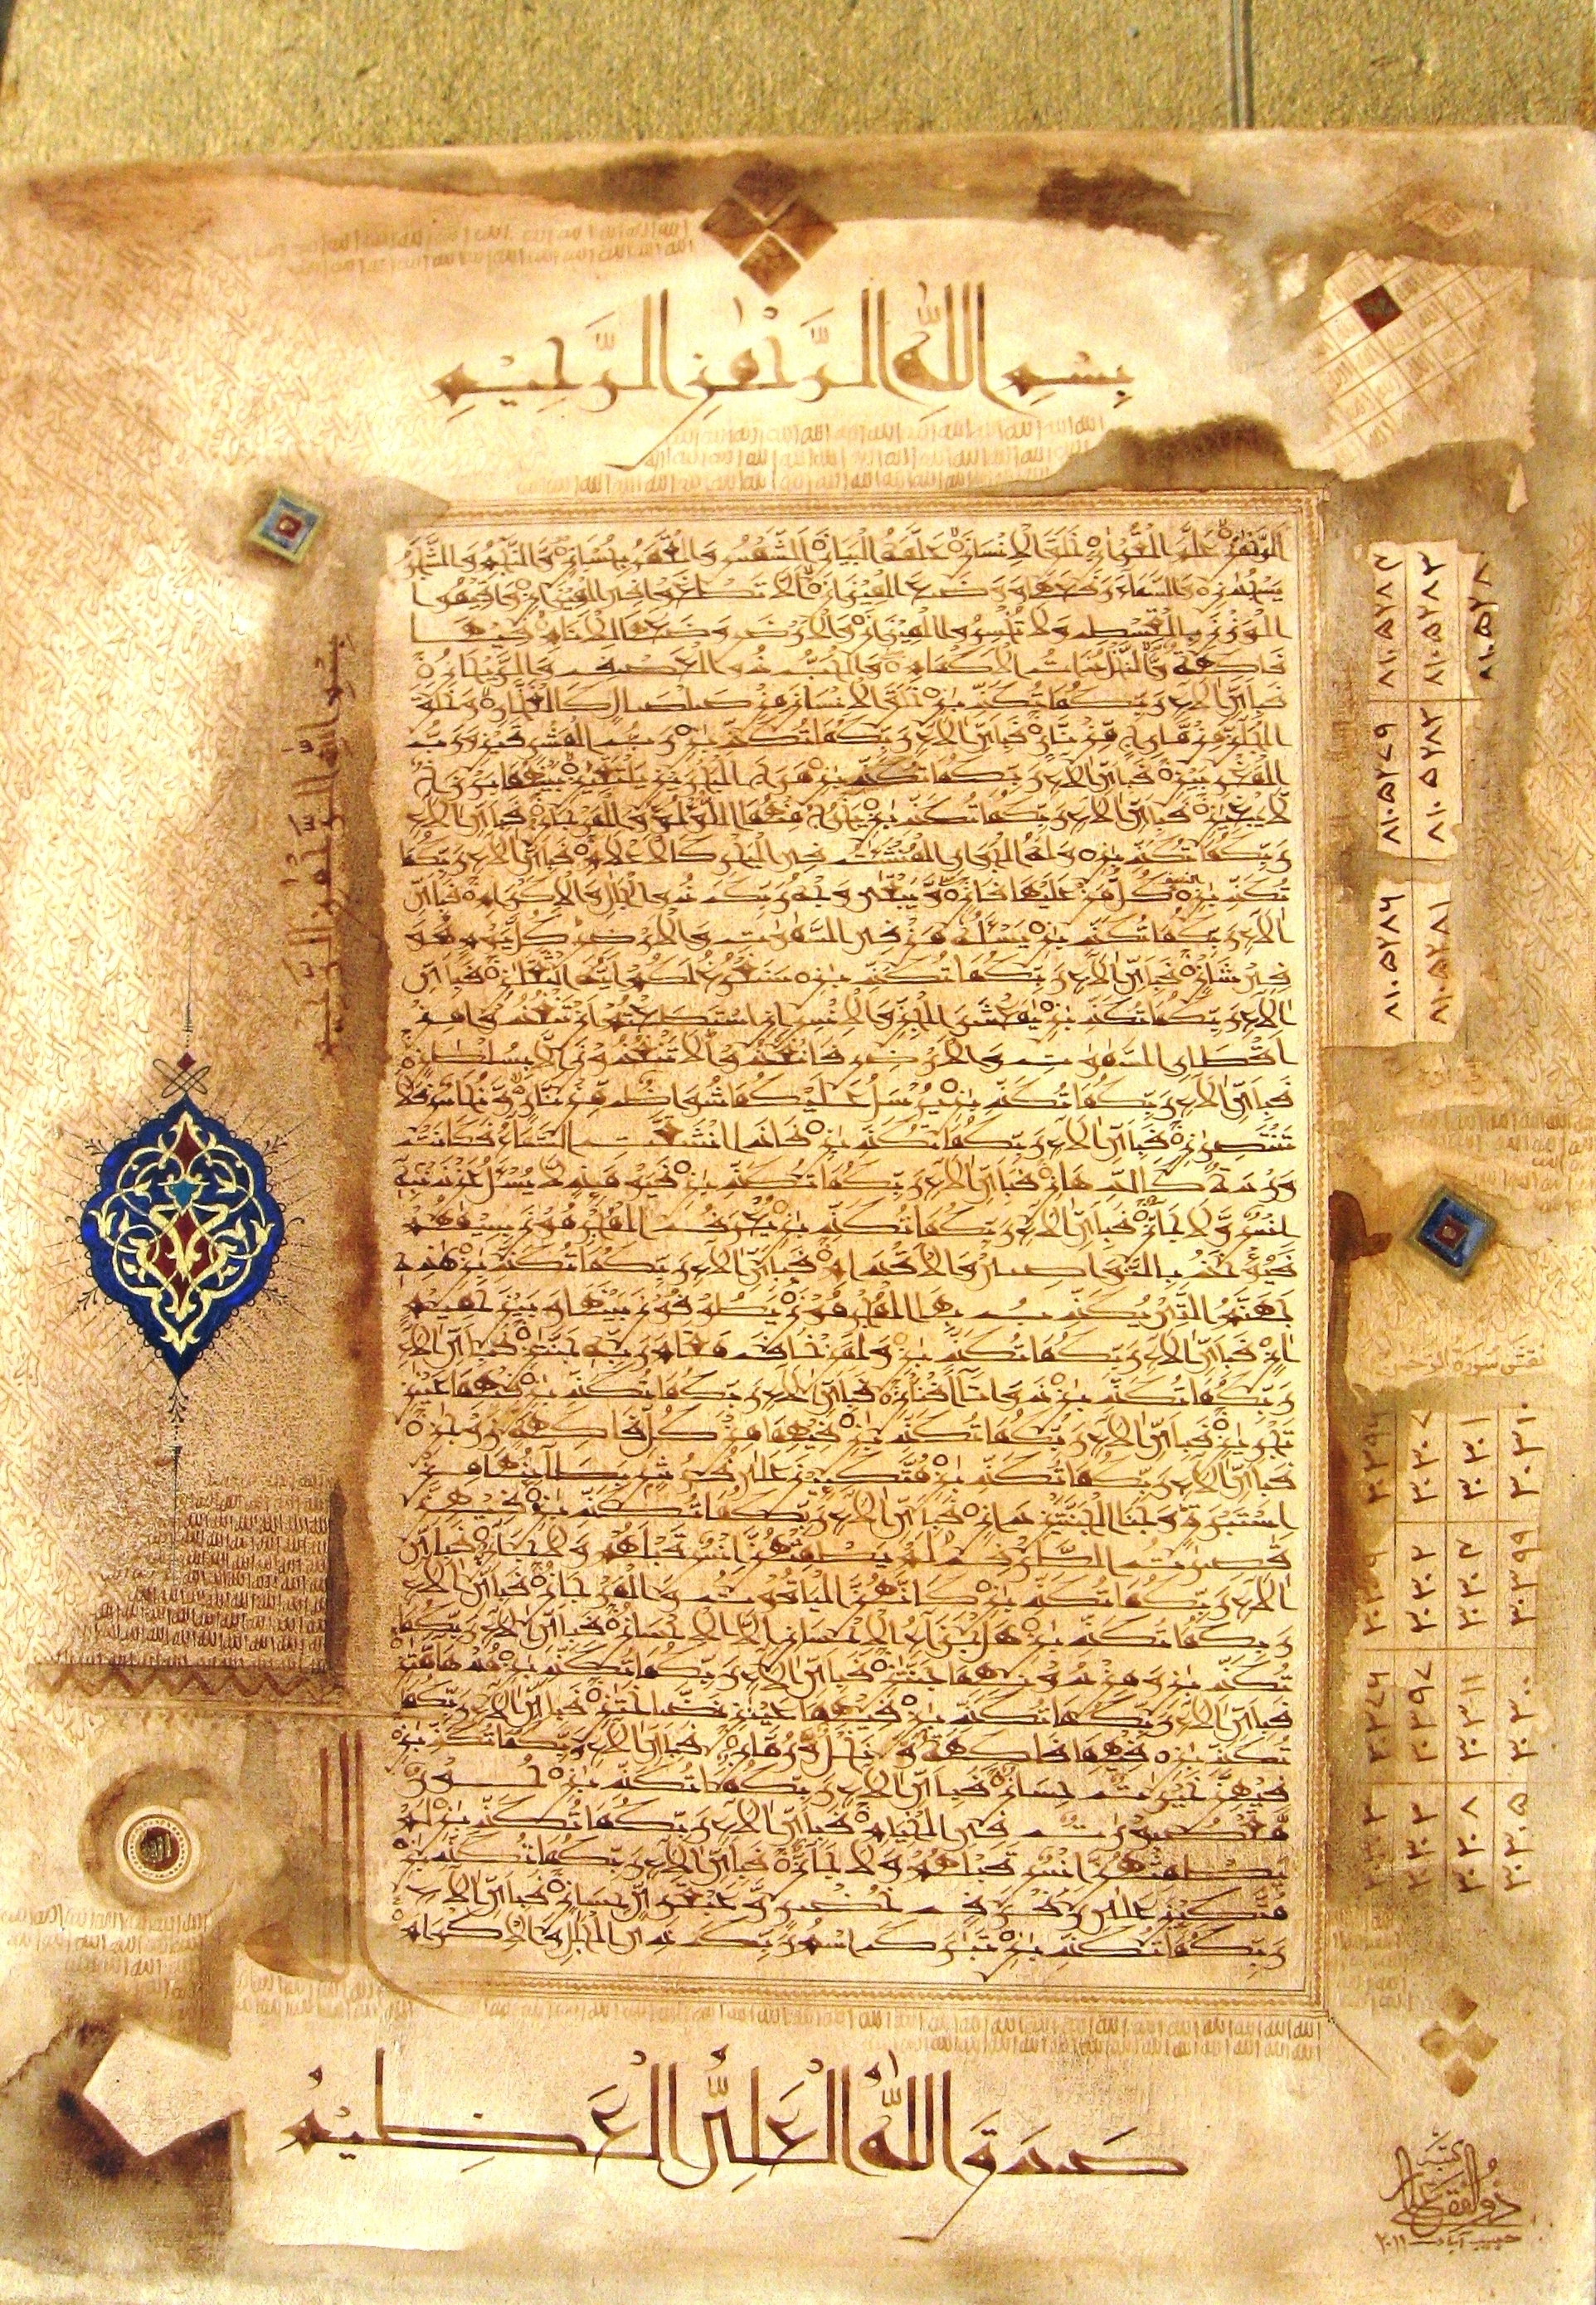 بِسْمِ اللّٰهِ الرَّحْمٰنِ الرَّحِيْمِ
اَلرَّحْمٰنُ عَلَّمَ الْقُرْاٰنَ خَلَقَ الْاِنْسَانَ عَلَّمَهُ الْبَيَانَ اَلشَّمْسُ وَالْقَمَرُ بِحُسْبَانٍ وَّالنَّجْمُ وَالشَّجَرُ
يَسْجُدٰنِ وَالسَّمَاءَ رَفَعَهَا وَوَضَعَ الْمِيْزَانَ اَلَّا تَطْغَوْا فِى الْمِيْزَانِ وَاَقِيْمُوا
الْوَزْنَ بِالْقِسْطِ وَلَا تُخْسِرُوا الْمِيْزَانَ وَالْاَرْضَ وَضَعَهَا لِلْاَنَامِ فِيْهَا
فَاكِهَةٌ وَّالنَّخْلُ ذَاتُ الْاَكْمَامِ وَالْحَبُّ ذُو الْعَصْفِ وَالرَّيْحَانُ
فَبِاَىِّ اٰلَاءِ رَبِّكُمَا تُكَذِّبٰنِ خَلَقَ الْاِنْسَانَ مِنْ صَلْصَالٍ كَالْفَخَّارِ وَخَلَقَ
الْجَانَّ مِنْ مَّارِجٍ مِّنْ نَّارٍ فَبِاَىِّ اٰلَاءِ رَبِّكُمَا تُكَذِّبٰنِ رَبُّ الْمَشْرِقَيْنِ وَرَبُّ
الْمَغْرِبَيْنِ فَبِاَىِّ اٰلَاءِ رَبِّكُمَا تُكَذِّبٰنِ مَرَجَ الْبَحْرَيْنِ يَلْتَقِيٰنِ بَيْنَهُمَا بَرْزَخٌ
لَّا يَبْغِيٰنِ فَبِاَىِّ اٰلَاءِ رَبِّكُمَا تُكَذِّبٰنِ يَخْرُجُ مِنْهُمَا اللُّؤْلُؤُ وَالْمَرْجَانُ فَبِاَىِّ اٰلَاءِ
رَبِّكُمَا تُكَذِّبٰنِ وَلَهُ الْجَوَارِ الْمُنْشَئٰتُ فِى الْبَحْرِ كَالْاَعْلَامِ فَبِاَىِّ اٰلَاءِ رَبِّكُمَا
تُكَذِّبٰنِ كُلُّ مَنْ عَلَيْهَا فَانٍ وَّيَبْقٰى وَجْهُ رَبِّكَ ذُو الْجَلٰلِ وَالْاِكْرَامِ فَبِاَىِّ
اٰلَاءِ رَبِّكُمَا تُكَذِّبٰنِ يَسْئَلُهُ مَنْ فِى السَّمٰوٰتِ وَالْاَرْضِ كُلَّ يَوْمٍ هُوَ
فِىْ شَاْنٍ فَبِاَىِّ اٰلَاءِ رَبِّكُمَا تُكَذِّبٰنِ سَنَفْرُغُ لَكُمْ اَيُّهَ الثَّقَلٰنِ فَبِاَىِّ
اٰلَاءِ رَبِّكُمَا تُكَذِّبٰنِ يٰمَعْشَرَ الْجِنِّ وَالْاِنْسِ اِنِ اسْتَطَعْتُمْ اَنْ تَنْفُذُوْا مِنْ
اَقْطَارِ السَّمٰوٰتِ وَالْاَرْضِ فَانْفُذُوْا لَا تَنْفُذُوْنَ اِلَّا بِسُلْطٰنٍ
فَبِاَىِّ اٰلَاءِ رَبِّكُمَا تُكَذِّبٰنِ يُرْسَلُ عَلَيْكُمَا شُوَاظٌ مِّنْ نَّارٍ وَّنُحَاسٌ فَلَا
تَنْتَصِرٰنِ فَبِاَىِّ اٰلَاءِ رَبِّكُمَا تُكَذِّبٰنِ فَاِذَا انْشَقَّتِ السَّمَاءُ فَكَانَتْ
وَرْدَةً كَالدِّهَانِ فَبِاَىِّ اٰلَاءِ رَبِّكُمَا تُكَذِّبٰنِ فَيَوْمَئِذٍ لَّا يُسْئَلُ عَنْ ذَنْبِهٖ
اِنْسٌ وَّلَا جَانٌّ فَبِاَىِّ اٰلَاءِ رَبِّكُمَا تُكَذِّبٰنِ يُعْرَفُ الْمُجْرِمُوْنَ بِسِيْمٰهُمْ
فَيُؤْخَذُ بِالنَّوَاصِىْ وَالْاَقْدَامِ فَبِاَىِّ اٰلَاءِ رَبِّكُمَا تُكَذِّبٰنِ هٰذِهٖ
جَهَنَّمُ الَّتِىْ يُكَذِّبُ بِهَا الْمُجْرِمُوْنَ يَطُوْفُوْنَ بَيْنَهَا وَبَيْنَ حَمِيْمٍ
اٰنٍ فَبِاَىِّ اٰلَاءِ رَبِّكُمَا تُكَذِّبٰنِ وَلِمَنْ خَافَ مَقَامَ رَبِّهٖ جَنَّتٰنِ فَبِاَىِّ اٰلَاءِ
رَبِّكُمَا تُكَذِّبٰنِ ذَوَاتَا اَفْنَانٍ فَبِاَىِّ اٰلَاءِ رَبِّكُمَا تُكَذِّبٰنِ فِيْهِمَا عَيْنٰنِ
تَجْرِيٰنِ فَبِاَىِّ اٰلَاءِ رَبِّكُمَا تُكَذِّبٰنِ فِيْهِمَا مِنْ كُلِّ فَاكِهَةٍ زَوْجٰنِ
فَبِاَىِّ اٰلَاءِ رَبِّكُمَا تُكَذِّبٰنِ مُتَّكِئِيْنَ عَلٰى فُرُشٍ بَطَائِنُهَا مِنْ
اِسْتَبْرَقٍ وَجَنَا الْجَنَّتَيْنِ دَانٍ فَبِاَىِّ اٰلَاءِ رَبِّكُمَا تُكَذِّبٰنِ فِيْهِنَّ
قٰصِرٰتُ الطَّرْفِ لَمْ يَطْمِثْهُنَّ اِنْسٌ قَبْلَهُمْ وَلَا جَانٌّ فَبِاَىِّ
اٰلَاءِ رَبِّكُمَا تُكَذِّبٰنِ كَاَنَّهُنَّ الْيَاقُوْتُ وَالْمَرْجَانُ فَبِاَىِّ اٰلَاءِ
رَبِّكُمَا تُكَذِّبٰنِ هَلْ جَزَاءُ الْاِحْسَانِ اِلَّا الْاِحْسَانُ فَبِاَىِّ اٰلَاءِ رَبِّكُمَا
تُكَذِّبٰنِ وَمِنْ دُوْنِهِمَا جَنَّتٰنِ فَبِاَىِّ اٰلَاءِ رَبِّكُمَا تُكَذِّبٰنِ مُدْهَامَّتٰنِ
فَبِاَىِّ اٰلَاءِ رَبِّكُمَا تُكَذِّبٰنِ فِيْهِمَا عَيْنٰنِ نَضَّاخَتٰنِ فَبِاَىِّ اٰلَاءِ رَبِّكُمَا
تُكَذِّبٰنِ فِيْهِمَا فَاكِهَةٌ وَّنَخْلٌ وَّرُمَّانٌ فَبِاَىِّ اٰلَاءِ رَبِّكُمَا تُكَذِّبٰنِ
فِيْهِنَّ خَيْرٰتٌ حِسَانٌ فَبِاَىِّ اٰلَاءِ رَبِّكُمَا تُكَذِّبٰنِ حُوْرٌ
مَّقْصُوْرٰتٌ فِى الْخِيَامِ فَبِاَىِّ اٰلَاءِ رَبِّكُمَا تُكَذِّبٰنِ لَمْ
يَطْمِثْهُنَّ اِنْسٌ قَبْلَهُمْ وَلَا جَانٌّ فَبِاَىِّ اٰلَاءِ رَبِّكُمَا تُكَذِّبٰنِ
مُتَّكِئِيْنَ عَلٰى رَفْرَفٍ خُضْرٍ وَّعَبْقَرِىٍّ حِسَانٍ فَبِاَىِّ اٰلَاءِ
رَبِّكُمَا تُكَذِّبٰنِ تَبٰرَكَ اسْمُ رَبِّكَ ذِى الْجَلٰلِ وَالْاِكْرَامِ
صَدَقَ اللّٰهُ الْعَلِىُّ الْعَظِيْمُ
بِسْمِ اللّٰهِ الرَّحْمٰنِ الرَّحِيْمِ
نقش سورة الرحمن
٢٠١١